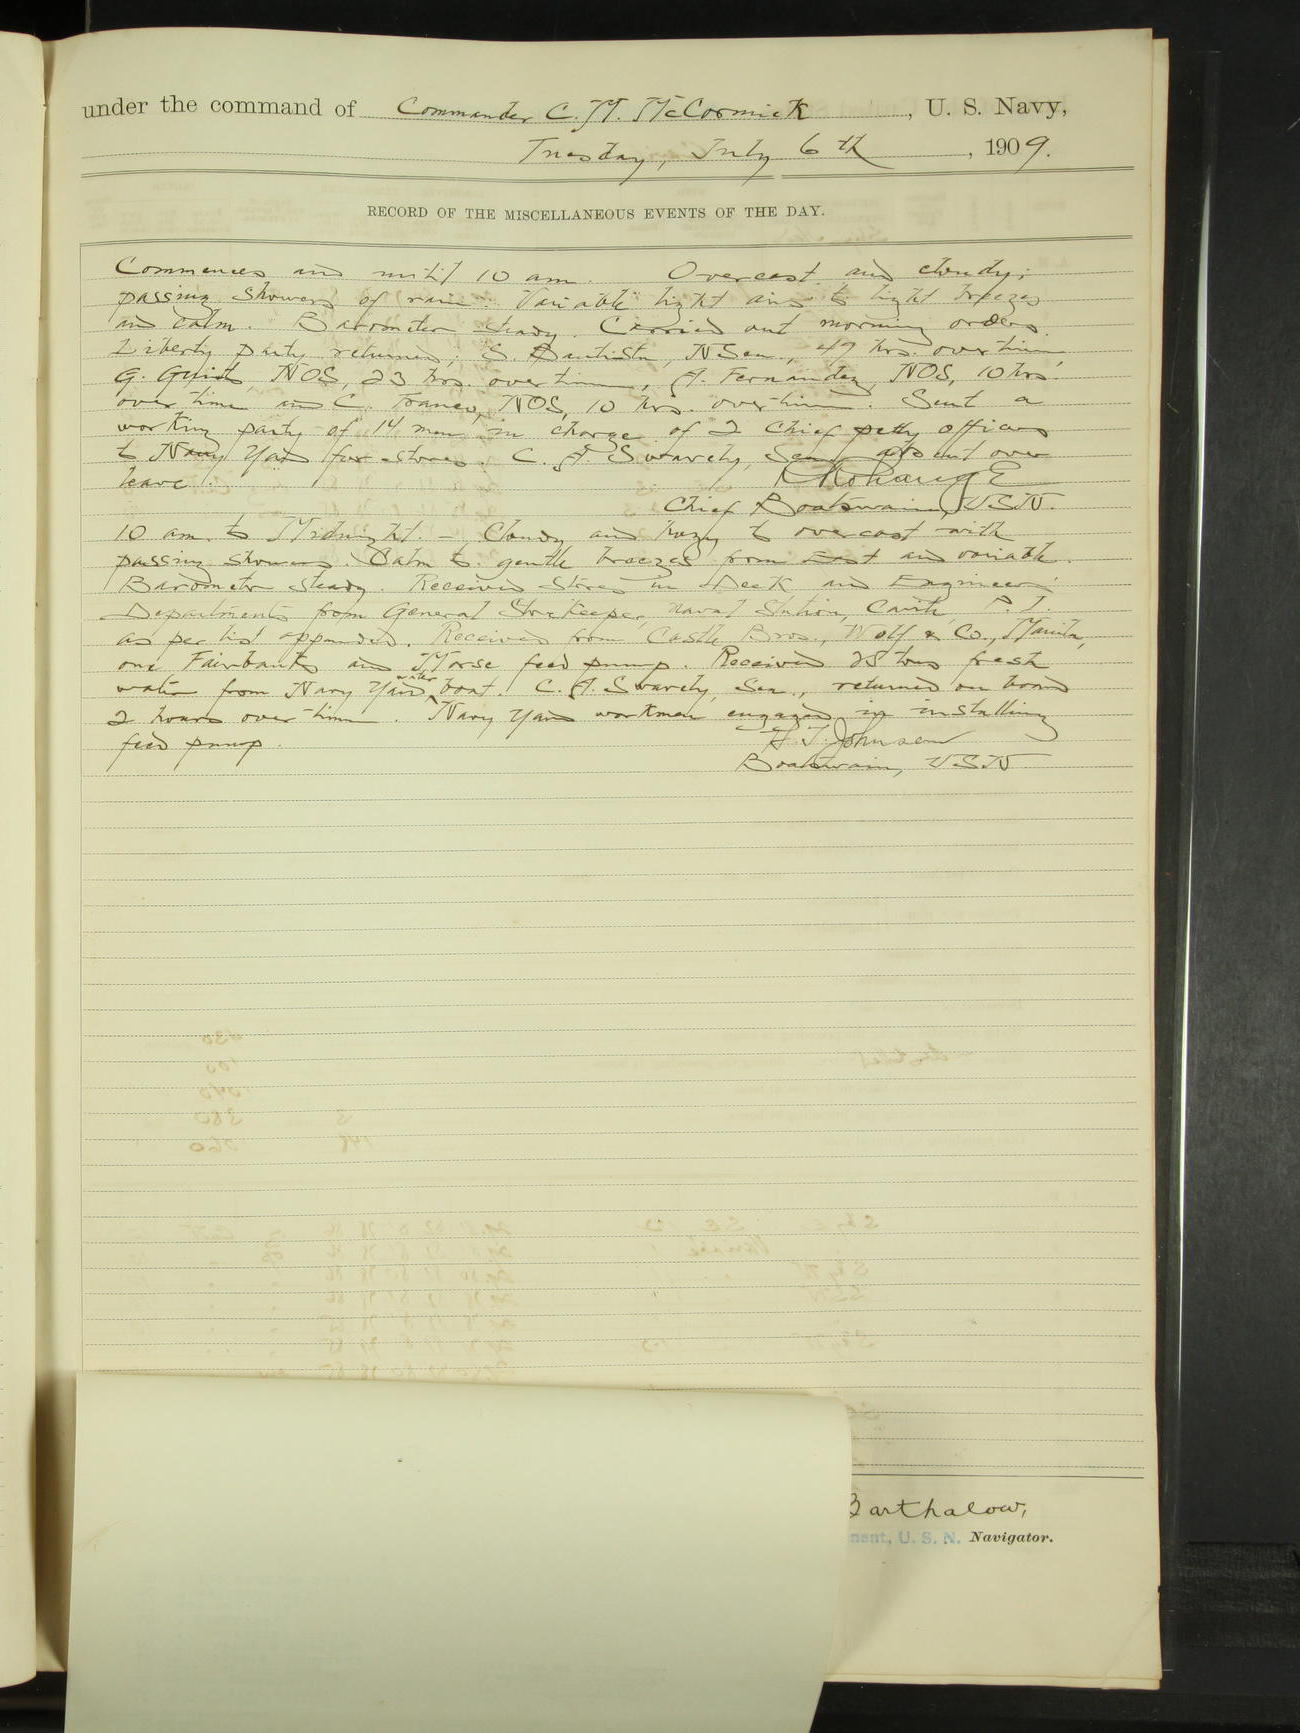 under the command of Commander C. M. McCormick, U. S. Navy,
Tuesday, July 6th, 1909.
RECORD OF THE MISCELLANEOUS EVENTS OF THE DAY.
Commences and until 10 am. Overcast and cloudy;
passing showers of rain. Variable light airs to light breezes
and calm. Barometer steady. Carried out morning orders.
Liberty party returned; S. Bautista, NSea., 49 hrs. overtime,
G. NOS, 23 hrs. overtime, A. Fernandez, NOS, 10 hrs.
over time and C. Franco, NOS, 10 hrs. overtime. Sent a
working party of 14 men in charge of 2 Chief petty officers
to Navy Yard for stores. C. A. Swarely, Sea., absent over
leave.
Chief Boatswain, USN.
10 am. to Midnight. - Cloudy and hazy to overcast with
passing showers. Calm to gentle breezes from East and variable.
Barometer steady. Received stores in Deck and Engineers'
Departments from General Storekeeper, Naval Station, Cavite, P. I.
as per list appended. Received from Castle Bros., Wolf & Co., Manila,
one Fairbanks and Morse feed pump. Received 25 tons fresh
water from Navy Yard water boat. C. A. Swarely, Sea., returned on board
2 hours over time. Navy Yard workmen engaged in installing
feed pump.
H. T. Johnsen
Boatswain, USN
Barthalow,
nant, U. S. N. Navigator.